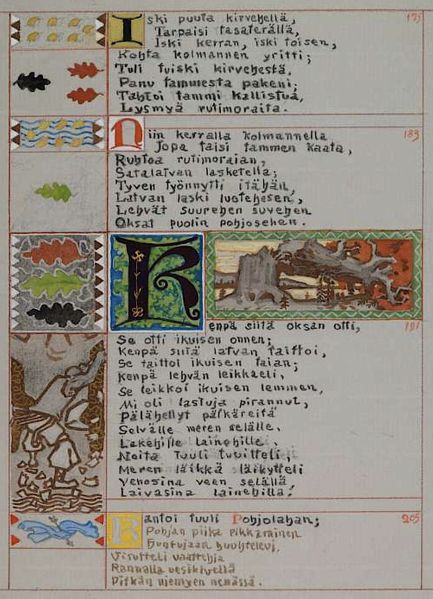 Iski puuta kirvehellä, 175
Tarpaisi tasaterällä,
Iski kerran, iski toisen,
Kohta kolmannen yritti;
Tuli tuiski kirvehestä,
Panu tammesta pakeni;
Tahtoi tammi kallistua,
Lysmyä rutimoraita.
Niin kerralla kolmannella 183
Jopa taisi tammen kaata,
Ruhtoa rutimoraian,
Satalatvan lasketella;
Tyven työnnytti itähän,
Latvan laski luotehesen,
Lehvät suurehen suvehen
Oksat puolin pohjosehen.
Kenpä siitä oksan otti, 191
Se otti ikuisen onnen;
Kenpä siitä latvan taittoi,
Se taittoi ikuisen taian;
Kenpä lehvän leikkaeli,
Se leikkoi ikuisen lemmen,
Mi oli lastuja pirannut,
Pälähellyt pälkäreitä
Selvälle meren selälle,
Lakehille lainehille,
Noita tuuli tuuitteli,
Meren läikkä läikytteli
Venosina veen selällä,
Laivasina lainehilla.
Kantoi tuuli Pohjolahan; 205
Pohjan piika pikkarainen
Huntujaan huuhtelevi,
Virutteli vaattehia
Rannalla vesikivellä
Pitkän niemyen nenässä.